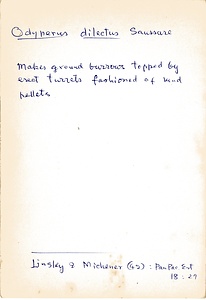 Odynerus dilectus Saussure
Makes ground burrows topped by
erect turrets fashioned of mud
pellets
Linsley & Michener (42) : Pan Pac. Ent
18 : 27